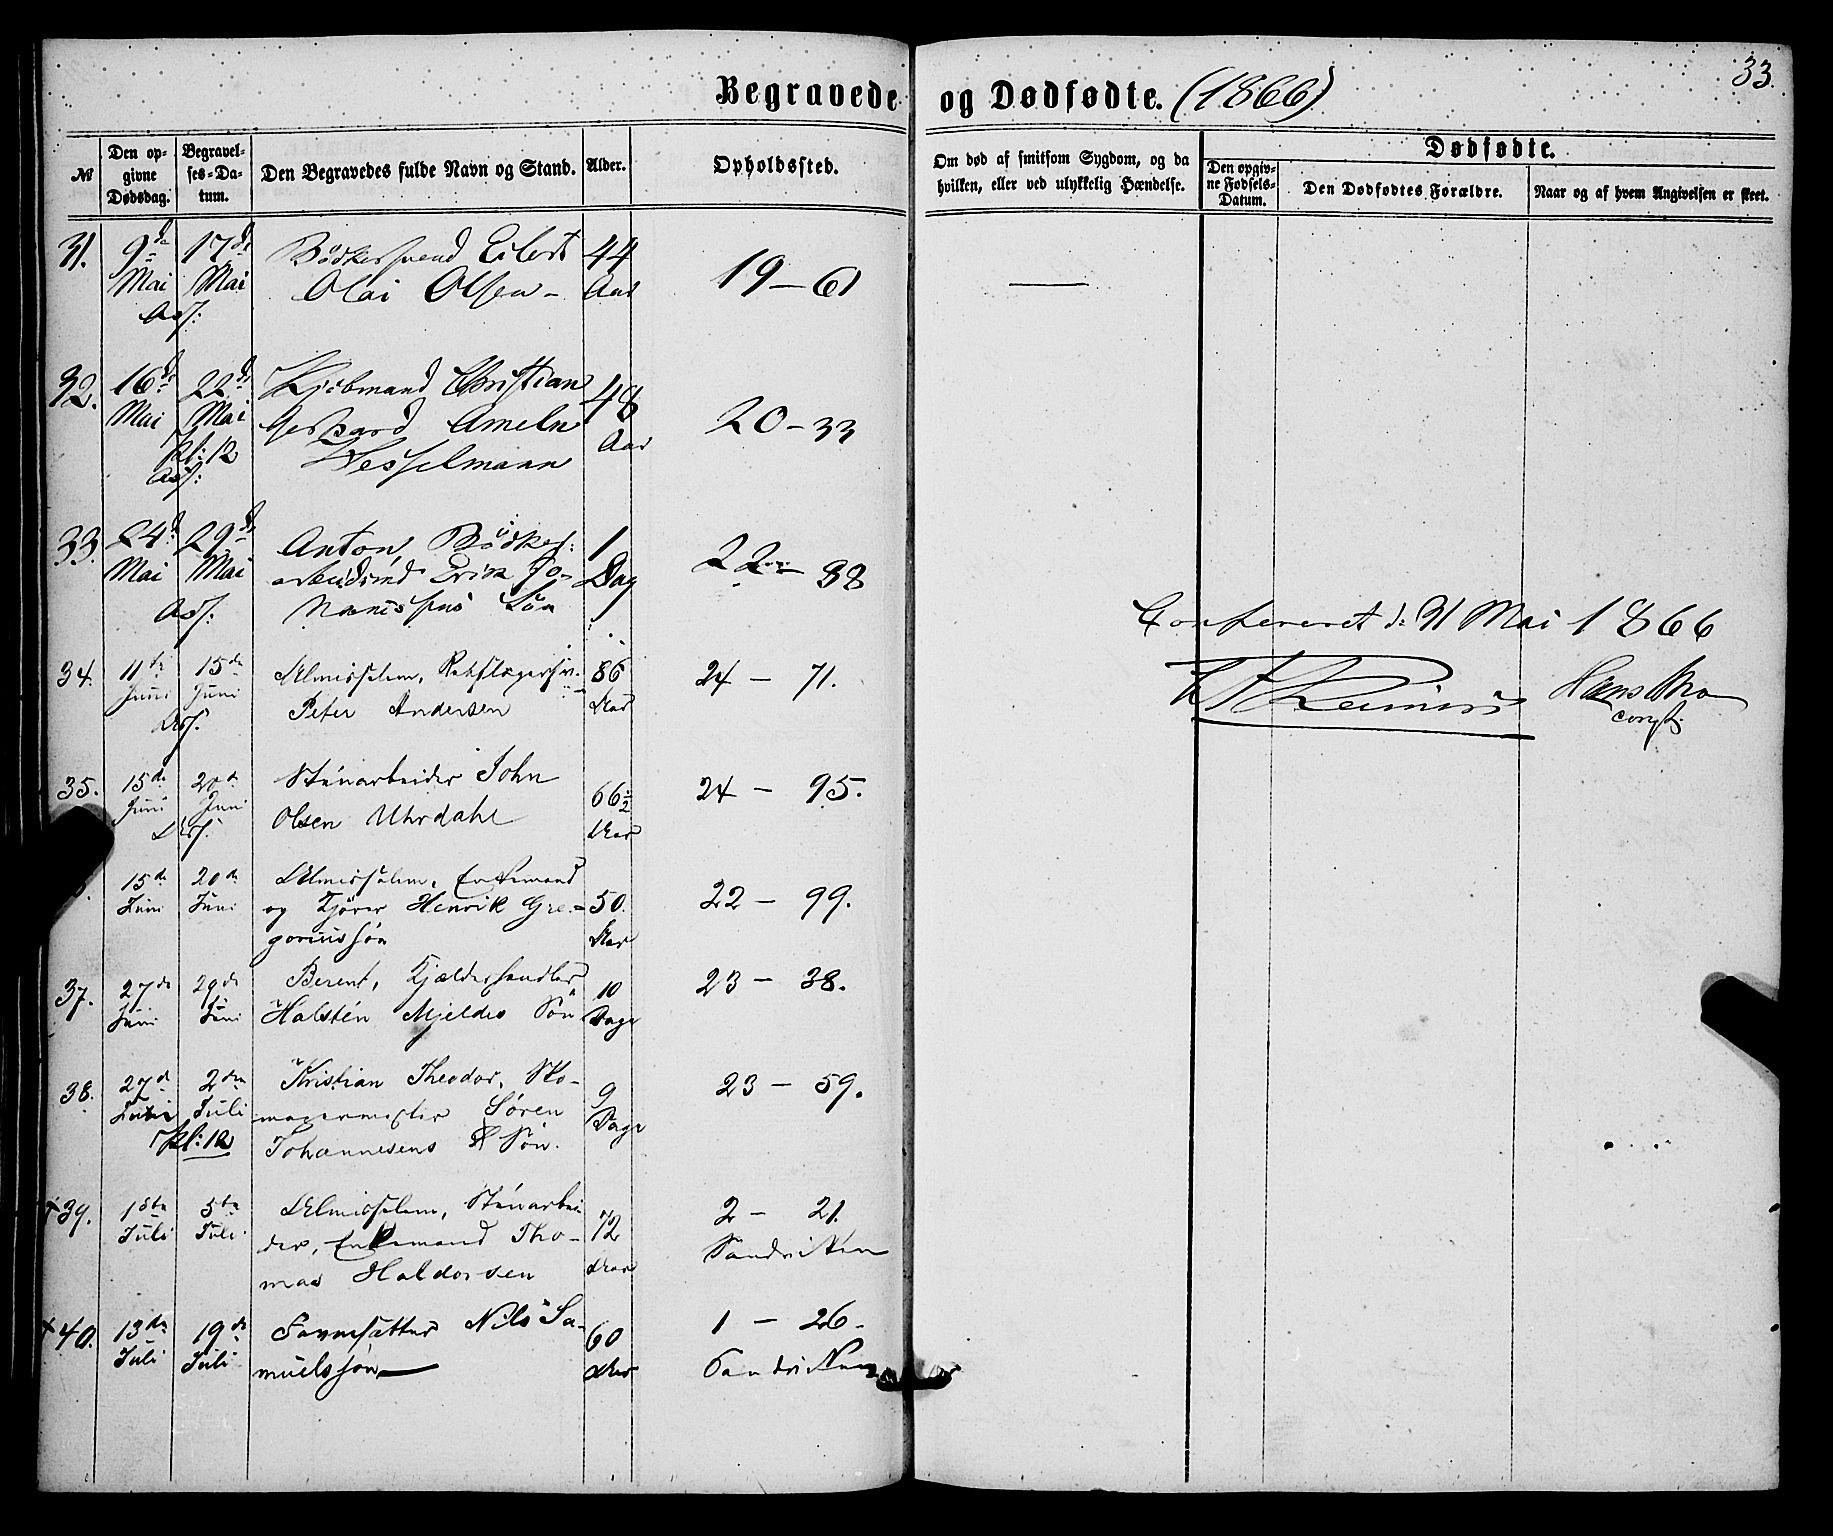 33.
Begravede og Dødfødte. (1866)
№
Den opgivne Dødsdag.
Begravelses-Datum.
Den Begravedes fulde Navn og Stand.
Alder.
Opholdssted.
Om død af smitsom Sygdom, og da hvilken, eller ved ulykkelig Hændelse.
Dødfødte.
Den opgivne Fødsels-Datum.
Den Dødfødtes Forældre.
Naar og af hvem Angivelsen er skeet.
31. 9de 17de Bödkersvend Eilert 44
Mai Mai Olai Olsen – Aar 19 – 61 —
Ass:
32. 16de 22de Kjöbmand Christian 48
Mai Mai Gerhard Ameln Aar 20 – 33
Kl: 12 Wesselmann
Ass:
33. 24de 29de Anton, Bödker- 1
Mai Mai arbeidsmd Erik Jo- Dag 22 – 38
Ass: Søn
Confereret d: 31 Mai 1866
34. 11te 15de Almisselem, Rebslagersv. 86 24 – 71.
Juni Juni Peter Andersen Aar
Ass.
35. 15de 20de Stenarbeider John 66½ 24 – 95.
Juni Juni Olsen Uhrdahl Aar
Ass.
15de 20de Almisselem, Enkemand
Juni Juni og Kjører Henrik Gre- 50. 22 – 99.
goriussøn Aar
37. 27de 29de Berent, Kjælderhandler 10 23 – 38.
Juni Juni Halsten Mjeldes Søn Dage
38. 27de 2den Kristian Theodor, Sko- 9 23 – 59.
Juli magermester Søren Dage
Kl: 12 Johannesens Søn.
+39. 1ste 5te Almisselem, Stenarbei 72 2 – 21.
Juli Juli der, Enkemand Tho- Aar Sandviken
mas Haldorsen
+40. 13de 19de Favnsætter Nils Sa- 60 1 – 26.
Juli Juli muelssøn Aar Sandviken